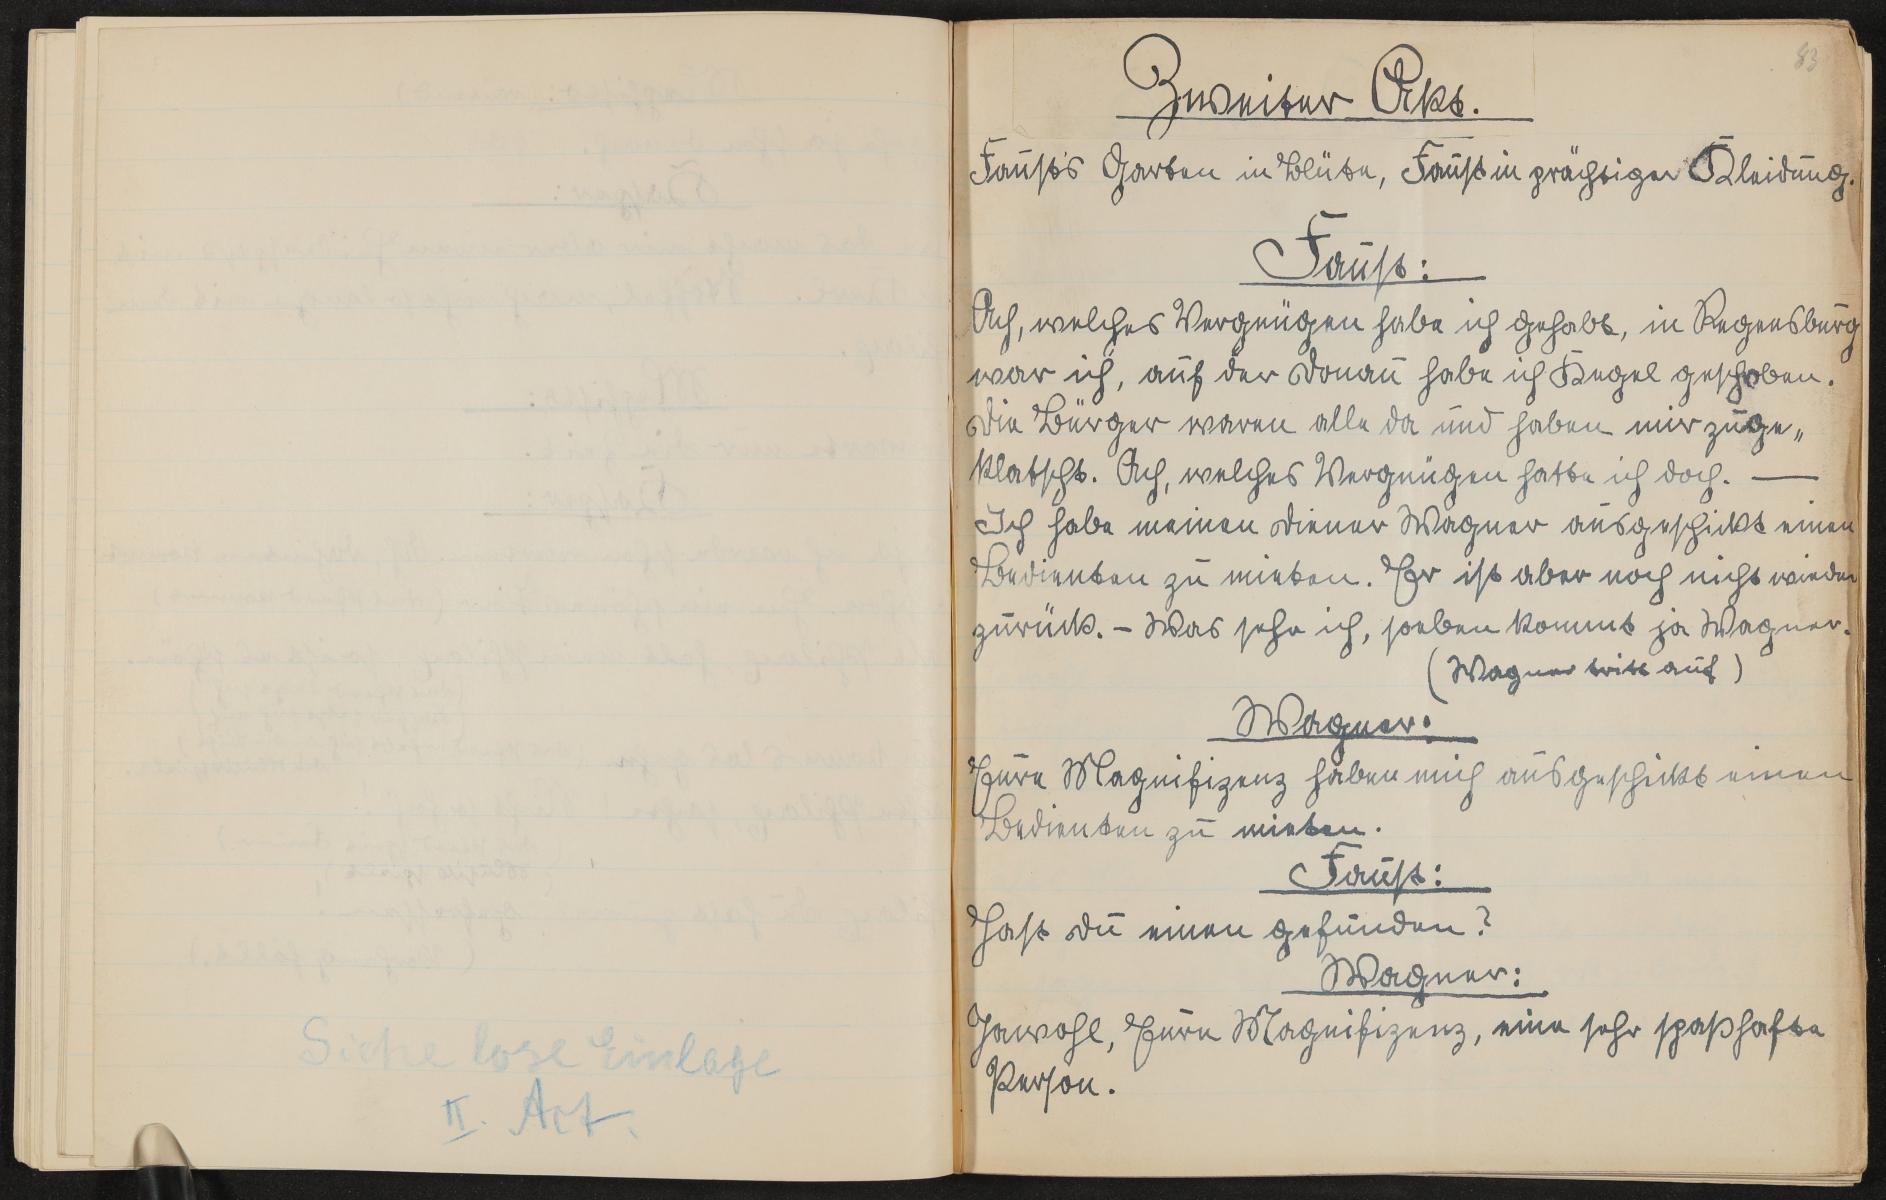 Siehe lose Einlage
II. Act.
83
Zweiter Akt.
Faust's Garten in Blüte, Faust in prächtiger Kleidung.
Faust:
Ach, welches Vergnügen habe ich gehabt, in Regensburg
war ich, auf der Donau habe ich Kegel geschoben.
Die Bürger waren alle da und haben mir zuge„
klatscht. Ach, welches Vergnügen hatte ich doch. —
Ich habe meinen Diener Wagner ausgeschickt einen
Bedienten zu mieten. Er ist aber noch nicht wieder
zurück. – Was sehe ich, soeben kommt ja Wagner.
(Wagner tritt auf)
Wagner:
Eure Magnifizenz haben mich ausgeschickt einen
Bedienten zu mieten.
Faust:
Hast du einen gefunden?
Wagner:
Jawohl, Eure Magnifizenz, eine sehr spaßhafte
Person.